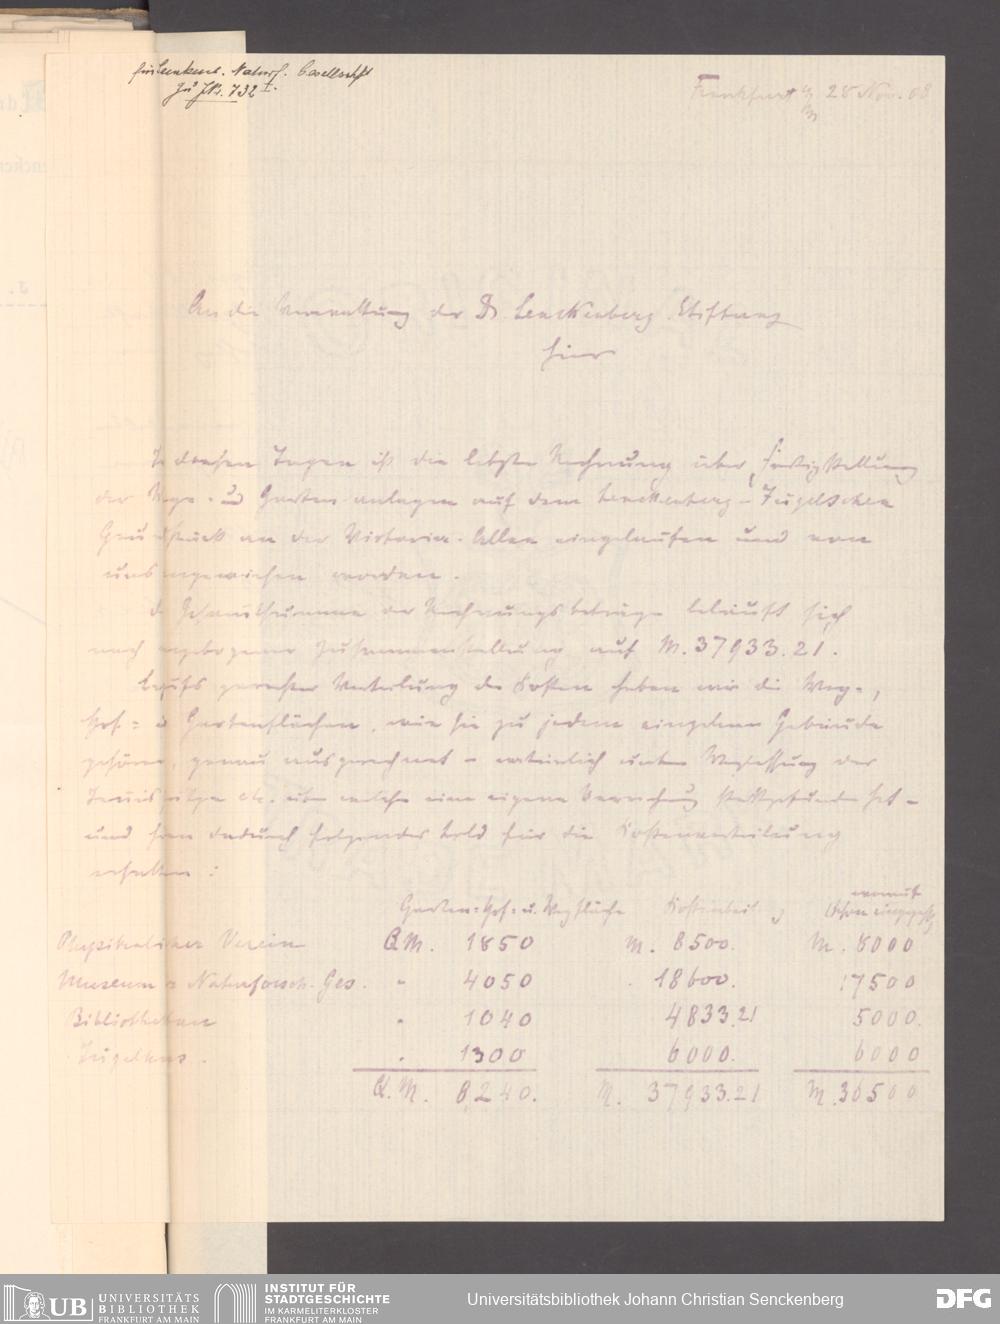 Senckenb. Naturf. Gesellschaft
zu J.Nr. 732 I.
Frankfurt a/M 28 Nov. 08
An die Verwaltung der Dr. Senckenberg. Stiftung
hier
In diesen Tagen ist die letzte Rechnung über Fertigstellung
der Wege- und Garten-anlagen auf dem Senckenberg-Jügelschen
Grundstück an der Victoria-Allee eingelaufen und von
uns angewiesen worden.
Die Gesamtsumme der Rechnungsbeträge beläuft sich
nach Zusammenstellung auf M. 37933.21.
Behufs gerechter Verteilung der Kosten haben wir die Weg-,
Hof- u Gartenflächen, wie sie zu jedem einzelnen Gebäude
gehören, genau ausgerechnet – natürlich unter Weglassung der
etc. über welche eine eigene stattgefunden hat –
und dadurch folgendes Bild für die Kostenverteilung
erhalten:
Garten- Hof- u. Wegfläche Kostenanteil worauf
schon eingezahlt
Physikalischer Verein Q.M. 1850 M. 8500. M. 8000
Museum u Naturforsch. Ges. " 4050 18600. 17500
Bibliotheken " 1040 4833.21 5000.
Jügelhaus. " 1300 6000. 6000
Q.M. 8240. M. 37933.21 M. 36500
UB UNIVERSITÄTS
BIBLIOTHEK
FRANKFURT AM MAIN
INSTITUT FÜR
STADTGESCHICHTE
IM KARMELITERKLOSTER
FRANKFURT AM MAIN
Universitätsbibliothek Johann Christian Senckenberg
DFG